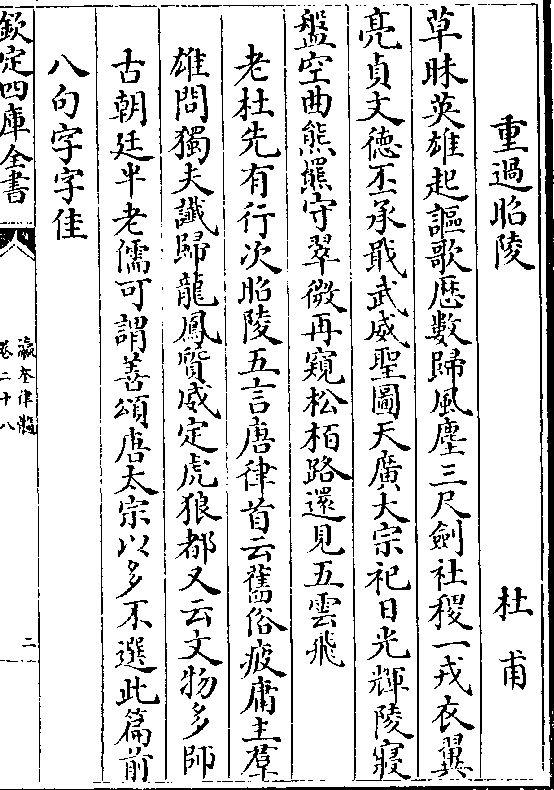 重過昭陵　杜甫
草昧英雄起謳歌厯數歸風塵三尺劍社稷一戎衣翼
亮貞文德丕承戢武威聖圖天廣大宗祀日光輝陵寢
盤空曲熊羆守翠微再窺松栢路還見五雲飛
老杜先有行次昭陵五言唐律首云舊俗疲庸主羣
雄問獨夫讖歸龍鳳質威定虎狼都又云文物多師
古朝廷半老儒可謂善頌唐太宗以多不選此篇前
八句字字佳
欽定四庫全書
瀛奎律髓
卷二十八
二